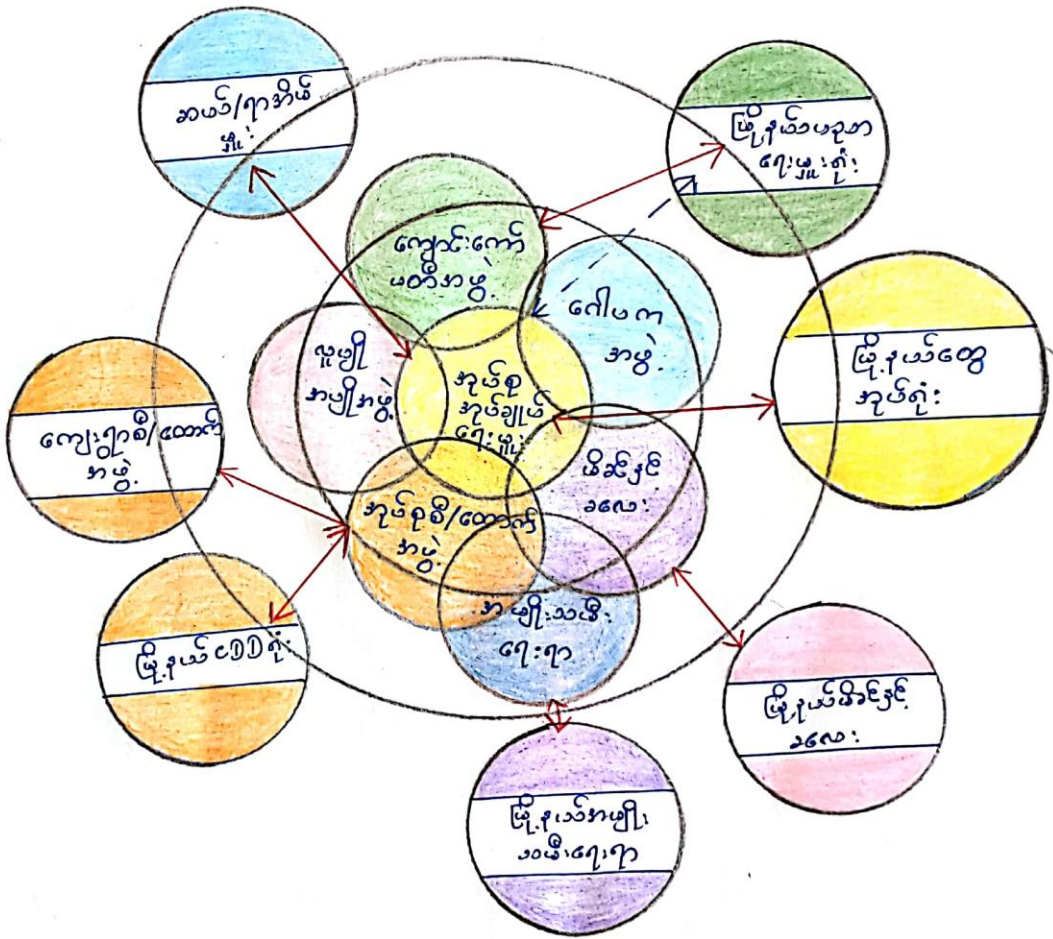 ဆယ်/ရာအိမ်
မှူး
မြို့နယ်ပညာ
ရေးမှူးရုံး
ကျောင်းကော်
မတီအဖွဲ့
ဂေါပက
အဖွဲ့
မြို့နယ်ထွေ
အုပ်ရုံး
လူပျို
အပျိုအဖွဲ့
အုပ်စု
အုပ်ချုပ်
ရေးမှူး
ကျေးရွာစီ/ထောက်
အဖွဲ့
မိခင်နှင့်
ကလေး
အုပ်စုစီ/ထောက်
အဖွဲ့
အမျိုးသမီး
ရေးရာ
မြို့နယ် CDD ရုံး
မြို့နယ်မိခင်နှင့်
ကလေး
မြို့နယ်အမျိုး
သမီးရေးရာ